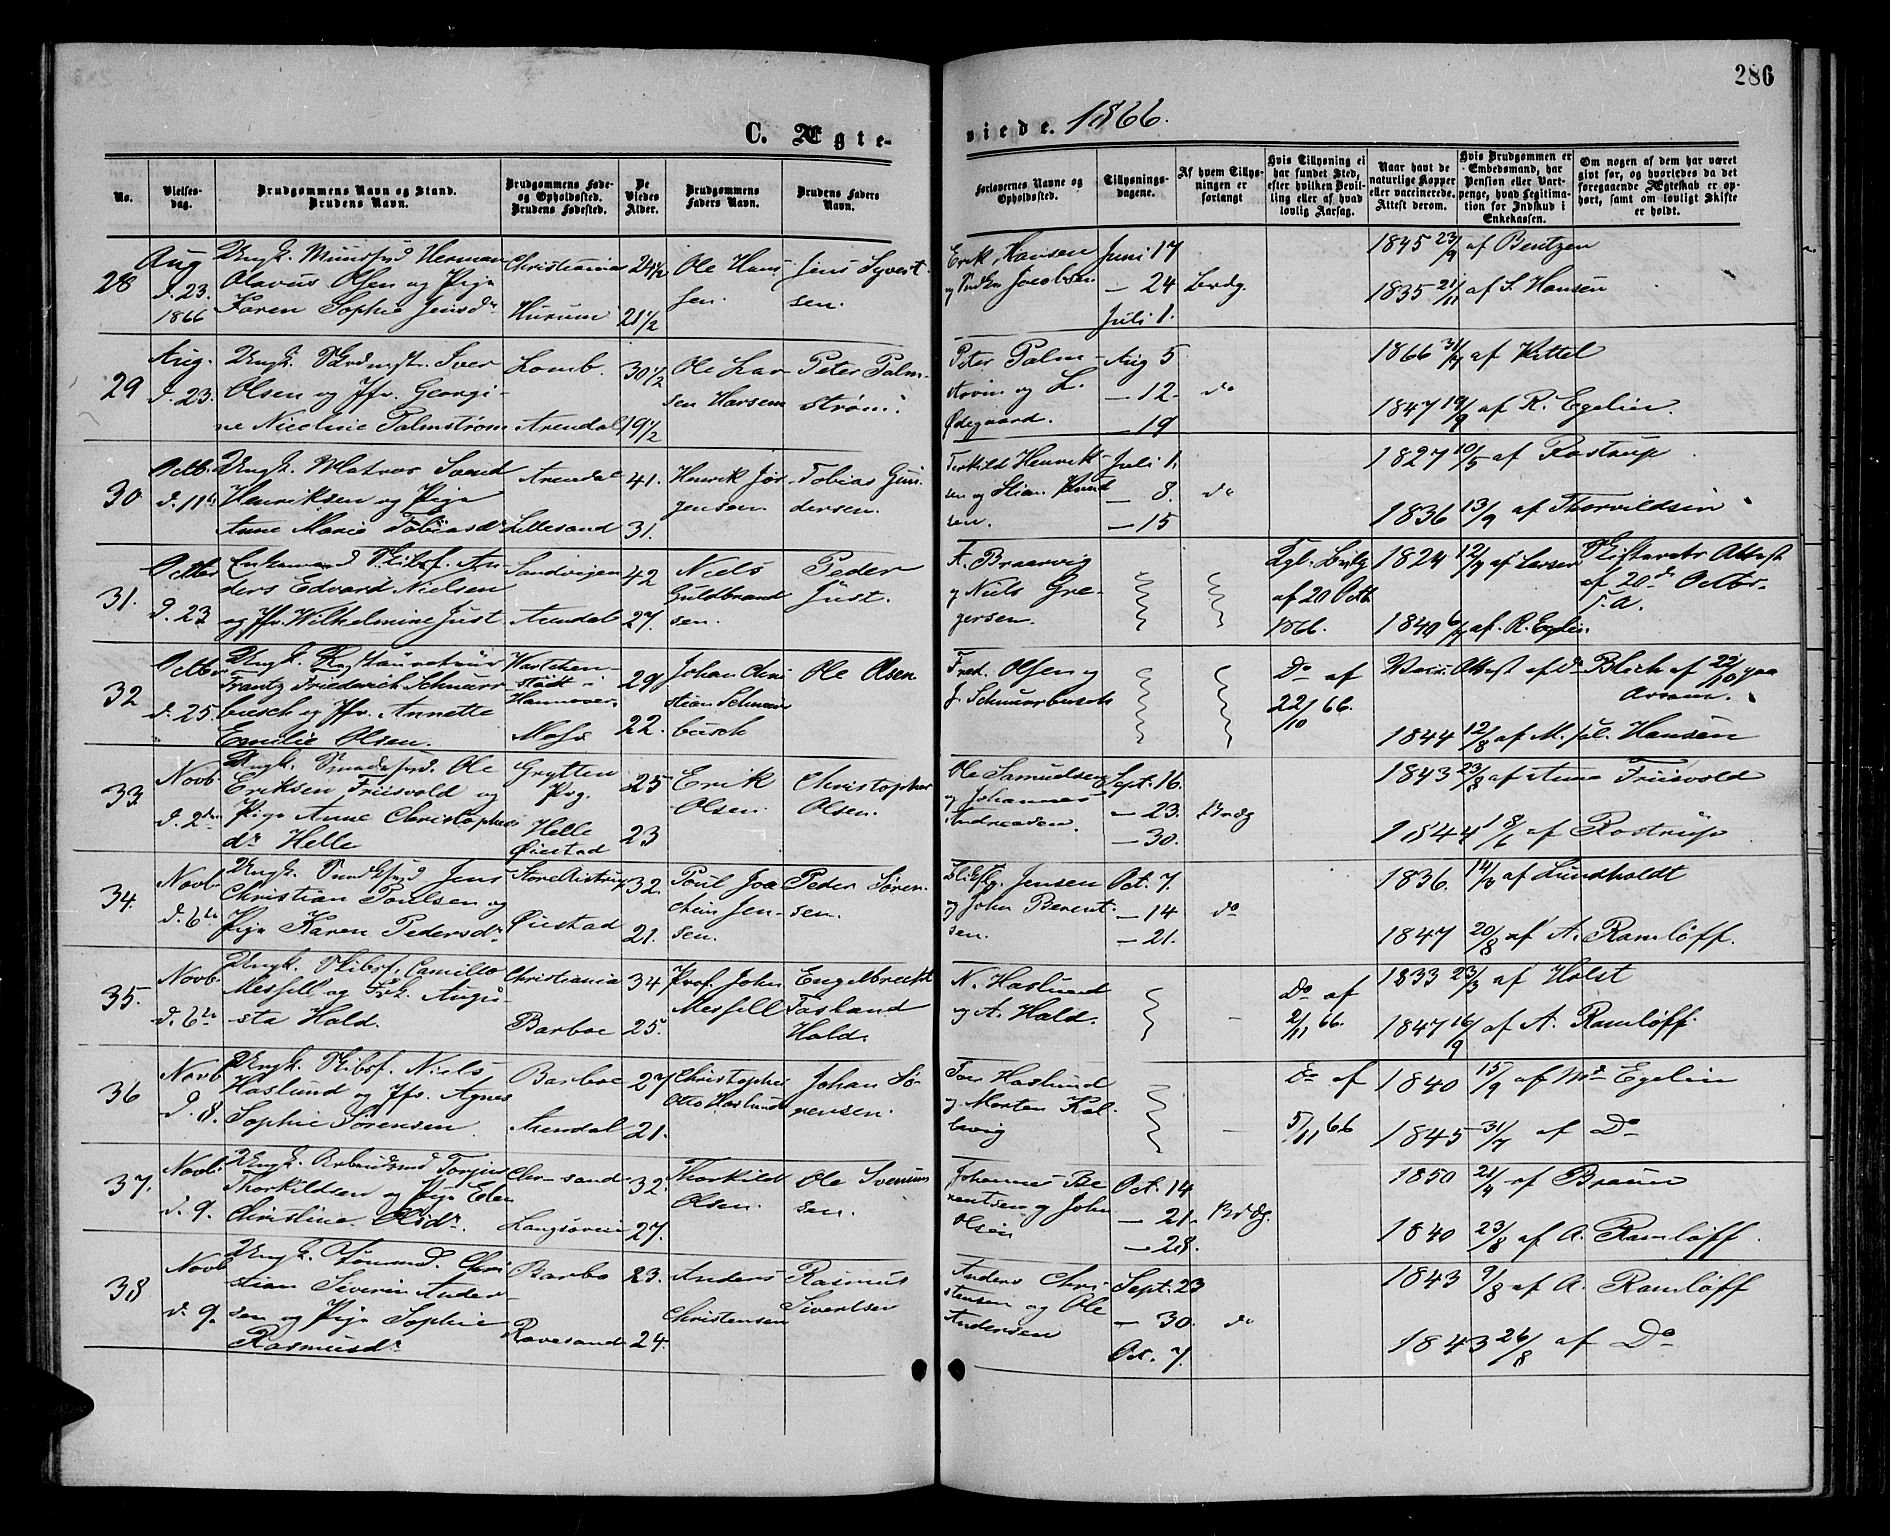 286
C. Ægte-
viede. 1866.
No.
Vielses-
dag.
Brudgommens Navn og Stand.
Brudens Navn.
Brudgommens Føde-
og Opholdssted.
Brudens Fødested.
De
Viedes
Alder.
Brudgommens
Faders Navn.
Brudens Faders
Navn.
Forlovernes Navne og
Opholdssted.
Tillysnings-
dagene.
Af hvem Tillys-
ningen er
forlangt
Hvis Tillysning ei
har fundet Sted,
efter hvilken Bevil-
ling eller af hvad
lovlig Aarsag.
Naar havt de
naturlige Kopper
eller vaccinerede.
Attest derom.
Hvis Brudgommen er
Embedsmand, har
Pension eller Vart-
penge, hvad Legitima-
tion for Indskud i
Enkekassen.
Om nogen af dem har været
givt før, og hvorledes da det
foregaaende Ægteskab er op-
hørt, samt om lovligt Skifte
er holdt.
28
Aug
d. 23.
1866
Ungk. Herman
Olavus Olsen og Pige
Karen Sophie Jensdr
Christiania
Hurum
24 1/2
21 1/2
Ole Han-
sen.
Jens Syvert-
sen.
Erik Hansen
og Jacobsen
Juni 17
— 24
Juli 1.
Brdg.
1845 23/9 af Bentzen
1835 21/11 af S. Hansen
29
Aug.
d. 23.
Ungk. Iver
Olsen og Jfr. Georgi-
ne Nicoline Palmstrøm
Lomb.
Arendal
30 1/2
19 1/2
Ole Lar-
sen Harsem
Peter Palm-
strøm.
Peter Palm-
strøm og L.
Ødegaard.
Aug 5
— 12.
— 19
do
1866 af Kittel
1847 19/9 af R. Egelien.
30
Octb.
d. 11te
Ungk. Matros Svend
Henriksen og Pige
Anne Marie Tobiasdr
Arendal
Lillesand
41.
31.
Henrik Jør-
gensen
Tobias Gun-
dersen.
Terkild Henrik-
sen og Stian Knud
sen.
Juli 1.
— 8.
— 15
do
1827 10/5 af Rostrup
1836 13/9 af Thorvildsen
31.
Octbr
d. 23
Enkemand Skibsf. An-
ders Edvard Nielsen
og Jfr. Wilhelmine Just
Sandvigen
Arendal
42
27.
Niels
Guldbrand
sen.
Peder
Just.
F. Braarvig
og Niels Gre-
gersen.
Kgl. Bevlg
af 20 Octb
1866.
1824 12/7 af Larsen
1840 6/7 af R. Egelin.
Skifterets Attest
af 20d Octbr.
d. a.
32
Octbr
d. 25.
Ungk.
Frantz Friederich Schnurr
busch og Jfr. Annette
Emilie Olsen.
i
Hannover.
Moss
29
22.
Johan Chri
stian Schnurr
busch
Ole Olsen
Fred. Olsen og
J. Schnurrbusch
Do af
22/10 66.
Vacc. Attest af Dr Blich af 22/10
1844 12/8 af M. sal. Hansen
33
Novb.
d. 2den
Ungk. Ole
Eriksen Friisvold og
Pige Anne Christophers
dr Helle
Grytten
Pg.
Helle
Øiestad
25
23
Erik
Olsen.
Christopher
Olsen.
Ole Samuelsen
og Johannes
Andreasen.
Sept. 16.
— 23.
— 30.
Brdg
1843 23/8 af Anne Friisvold
1844 8/6 af Rostrup
34.
Novb.
d. 6te
Ungk. Jens
Christian Poulsen og
Pige Karen Pedersdr
Øiestad
32.
21.
Poul Joa
chim Jen-
sen.
Peder Søren-
sen.
Jensen
og John Berent-
sen.
Oct. 7.
— 14
— 21.
do
1836. 14/3 af Lundholdt
1847 20/8 af A. Ramløff.
35.
Novb.
d. 6te
Ungk. Skibsf. Camillo
Messell og Frk. Augu-
sta Hald.
Christiania
Barboe
34
25.
Prof. John
Messell
Engelbrecht
Fasland
Hald.
N. Haslund
og A. Hald.
Do af
2/11 66.
1833 23/3 af Holst
1847 16/9 af A. Ramløff.
36
Novb
d. 8.
Ungk. Skibsf. Niels
Haslund og Jfr. Agnes
Sophie Sørensen
Barboe
Arendal
27
21.
Christopher
Otto Haslund
Johan Sø-
rensen.
Haslund
og Morten Kal-
levig
Do af
5/11 66
1840 15/9 af Md Egelin
1845 31/7 af Do
37.
Novb.
d. 9.
Ungk. Arbeidsmd Torjus
Thorkildsen og Pige Elen
Christine Olsdr
Chr-sand
32.
27.
Thorkild
Olsen.
Ole Svenun
sen.
Johannes Be
rentsen og John
Olsen
Oct. 14
— 21.
— 28.
Brdg.
1850 21/4 af Braun
1840 23/8 af A. Ramløff.
38
Novb
d. 9.
Ungk. Tømmd. Chri
stian Severin Ander
sen og Pige Sophie
Rasmusdr
Barbo
Revesand
23.
24.
Anders
Christensen
Rasmus
Sivertsen
Anders Chri-
stensen og Ole
Andersen
Sept. 23
— 30.
Oct. 7.
do
1843 9/8 af A. Ramløff
1843 26/8 af Do